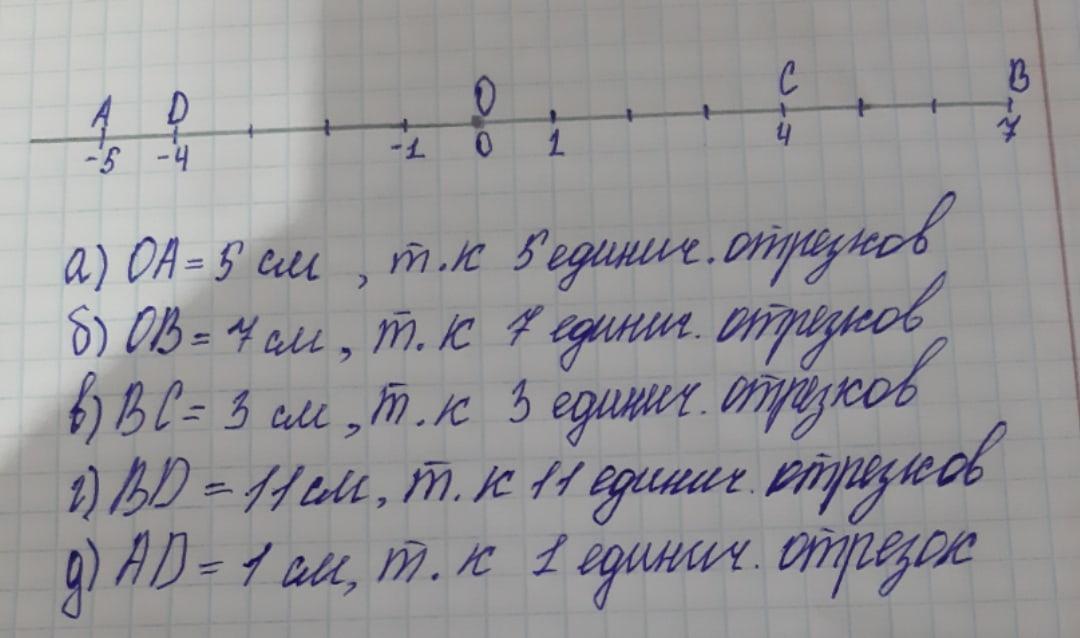 A D O C B
-5 -4 -1 0 1 4 7
а) OA = 5 см , т.к 5 единич. отрезков
б) OB = 7 см, т.к 7 единич. отрезков
в) BC = 3 см, т.к 3 единич. отрезков
г) BD = 11 см, т.к 11 единич. отрезков
д) AD = 1 см, т.к 1 единич. отрезок